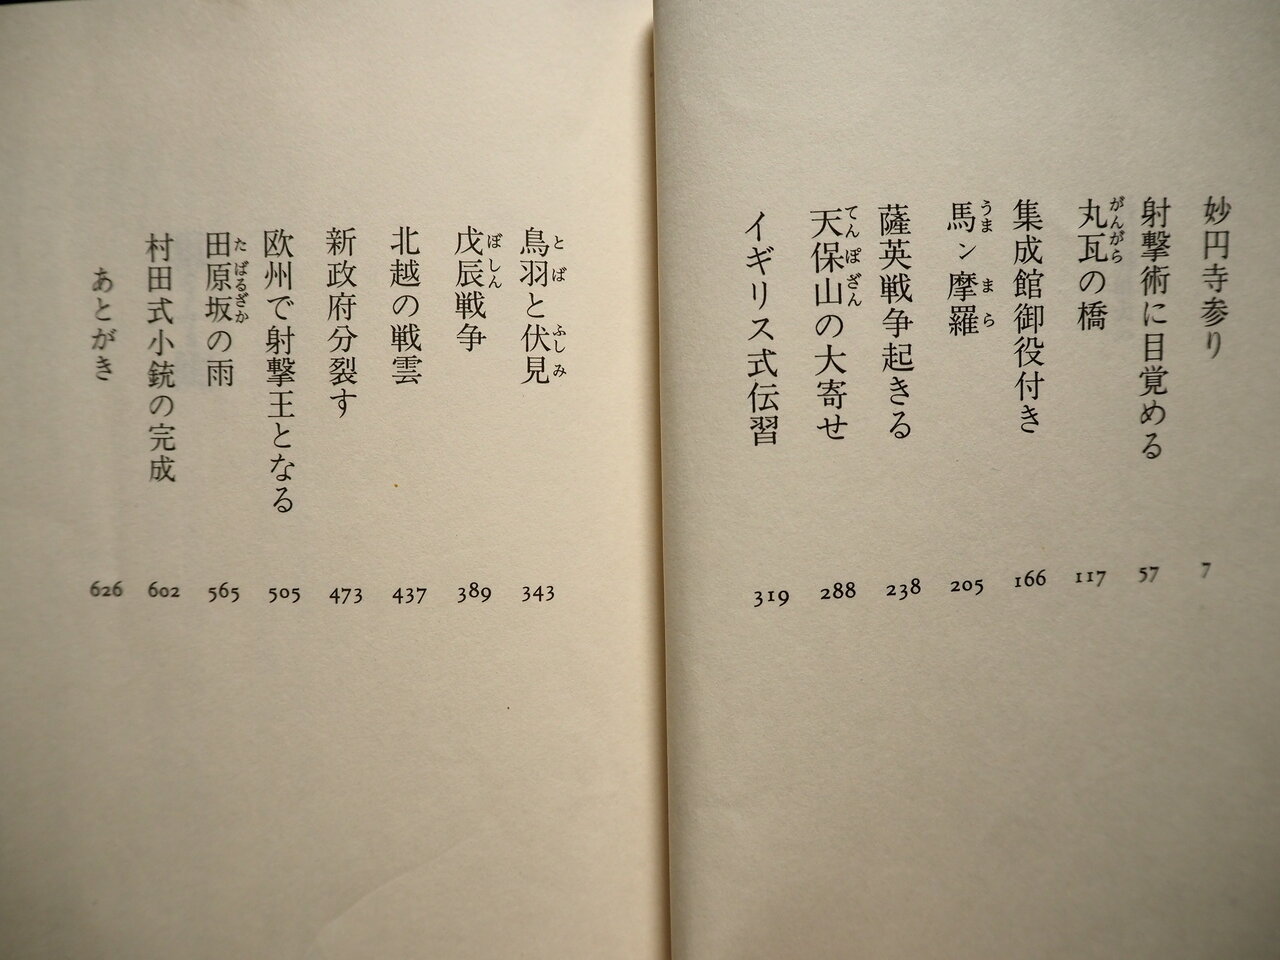 妙円寺参り 7
射撃術に目覚める 57
丸瓦の橋 117
がんがら
集成館御役付き 166
馬ン摩羅 205
うま まら
薩英戦争起きる 238
天保山の大寄せ 288
てんぽざん
イギリス式伝習 319
鳥羽と伏見 343
とば ふしみ
戊辰戦争 389
ぼしん
北越の戦雲 437
新政府分裂す 473
欧州で射撃王となる 505
田原坂の雨 565
たばるざか
村田式小銃の完成 602
あとがき 626